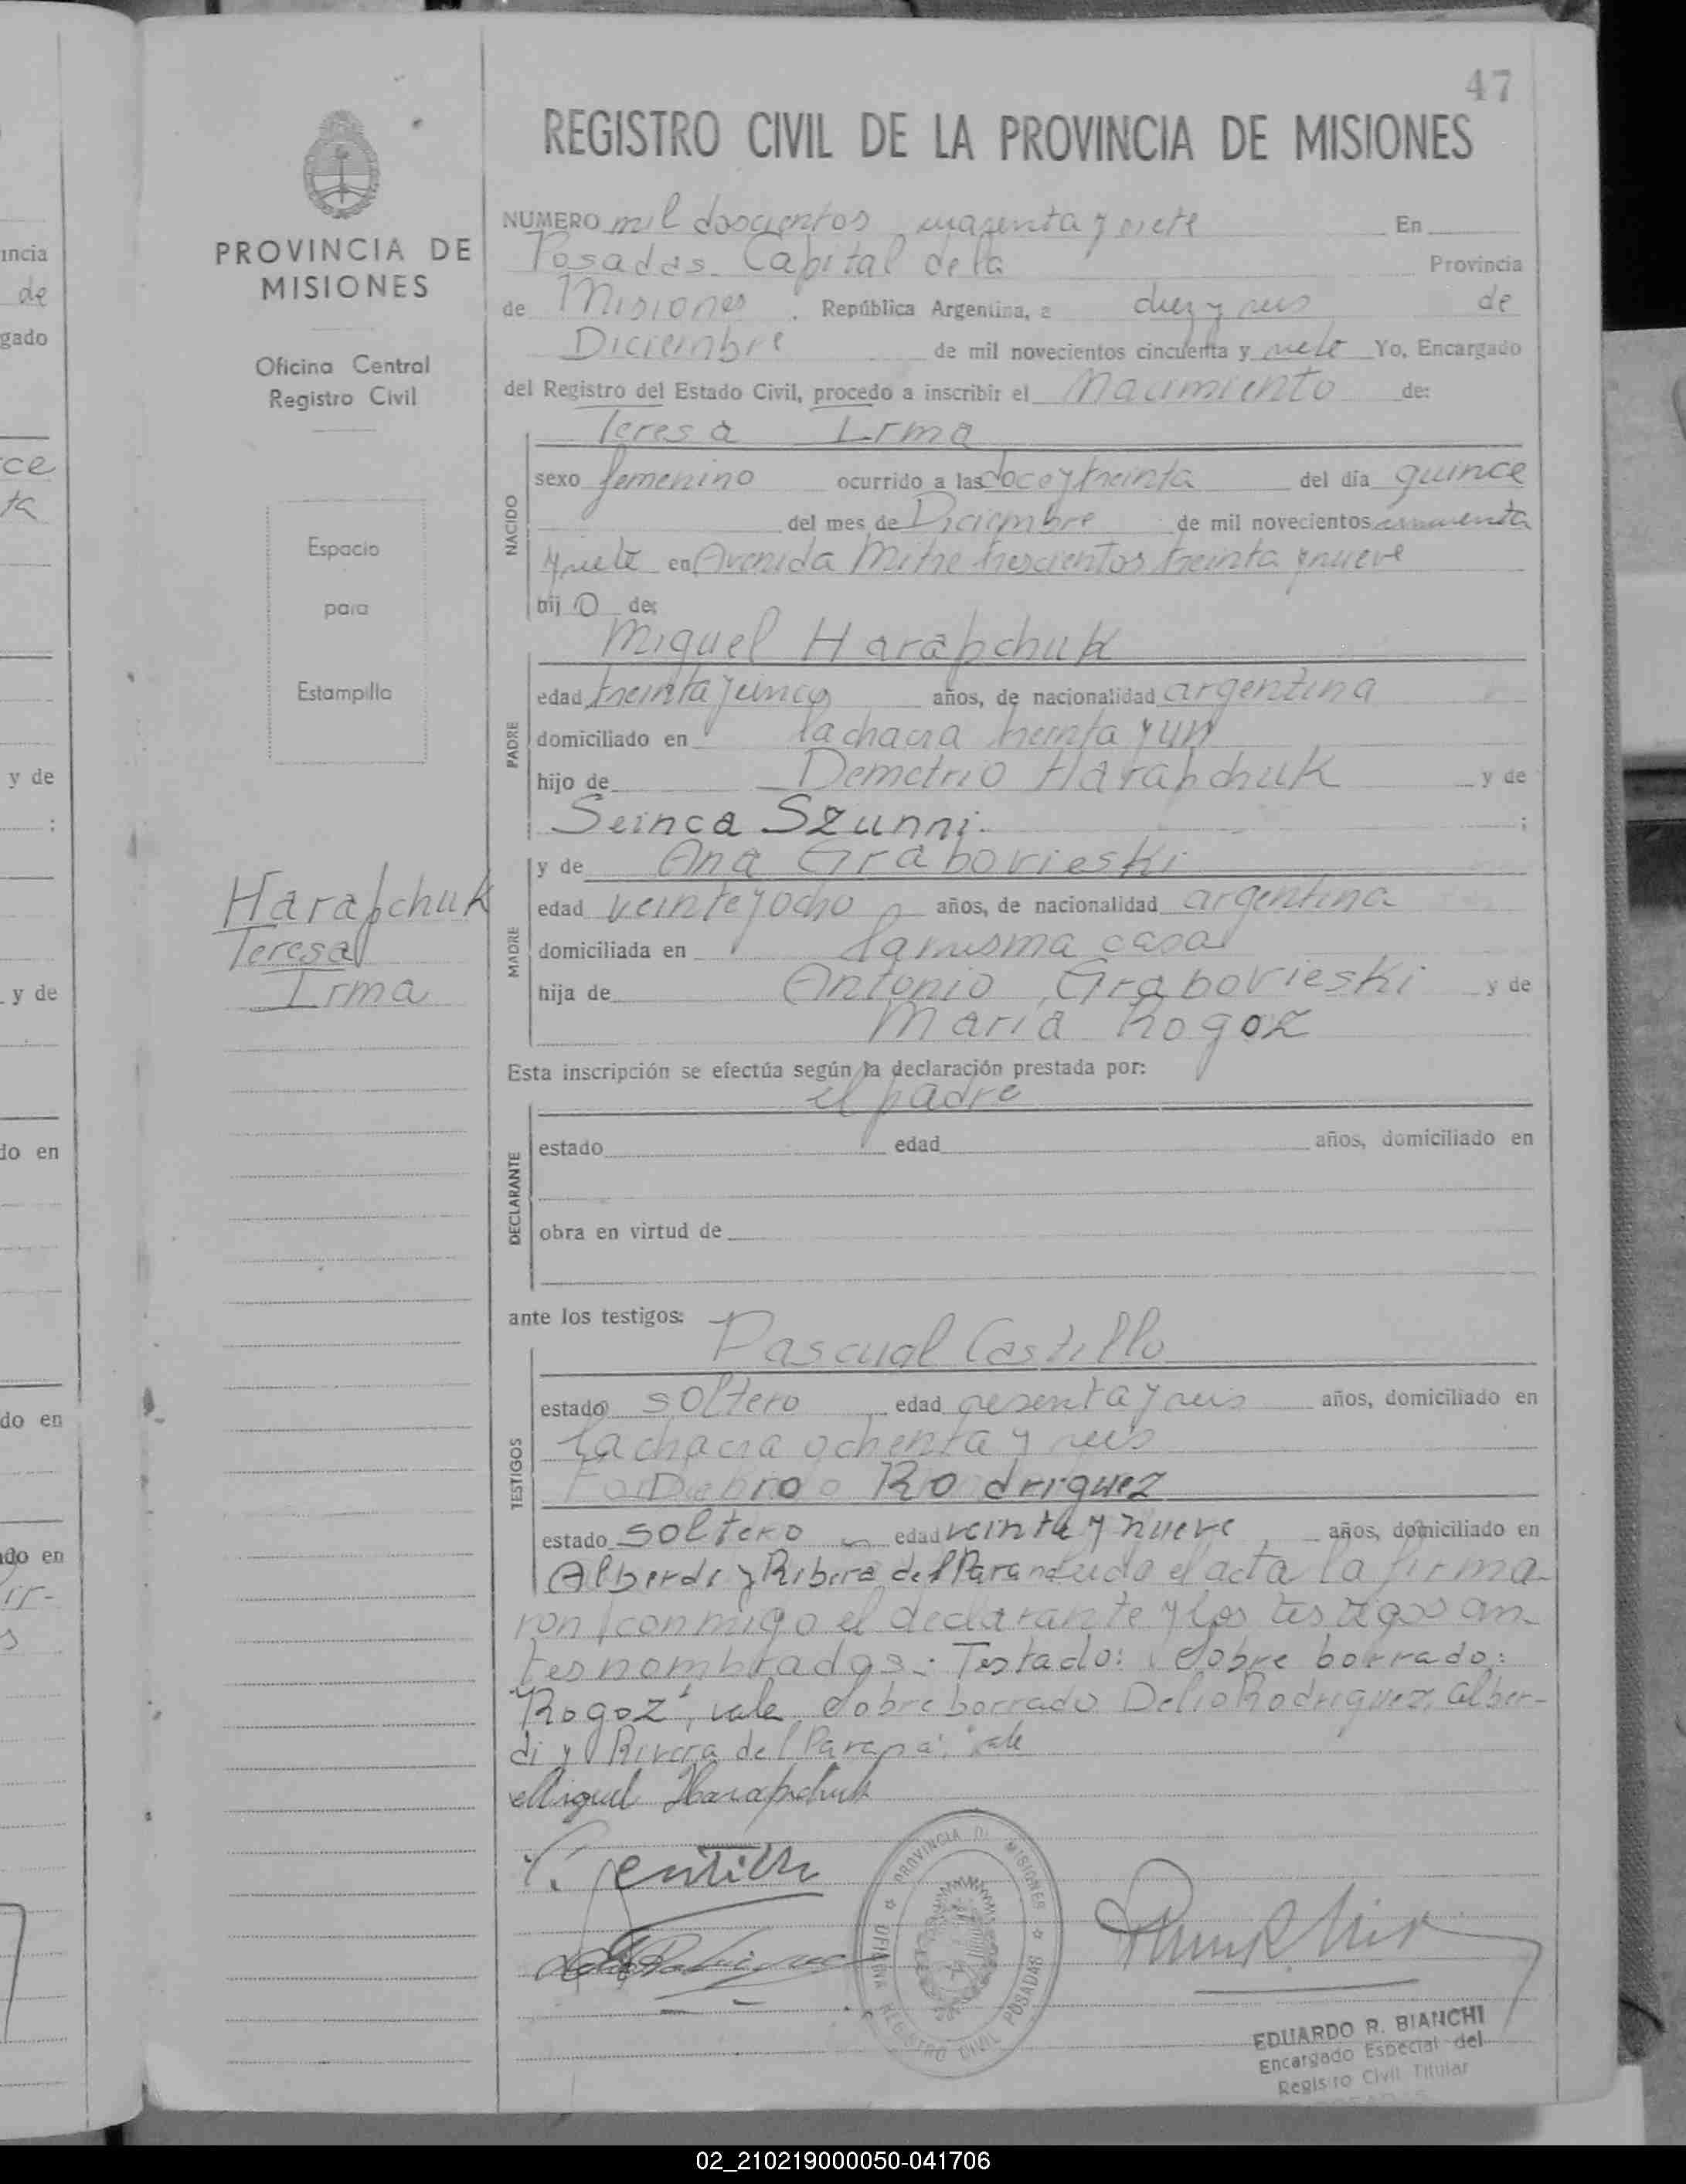 47
REGISTRO CIVIL DE LA PROVINCIA DE MISIONES
PROVINCIA DE
MISIONES
Oficina Central
Registro Civil
Espacio
para
Estampilla
Harapchuk
Teresa
Irma
NUMERO mil doscientos cuarenta y siete En
Posadas Capital de la Provincia
de Misiones. República Argentina, a diez y seis de
Diciembre de mil novecientos cincuenta y siete Yo, Encargado
del Registro del Estado Civil, procedo a inscribir el Nacimiento de:
Teresa Irma
NACIDO
sexo femenino ocurrido a las doce y treinta del día quince
del mes de Diciembre de mil novecientos cincuenta
y siete en Avenida Mitre trescientos treinta y nueve
hij o de:
Miguel Harapchuk
PADRE
edad treinta y cinco años, de nacionalidad argentina
domiciliado en la chacra treinta y un
hijo de Demetrio Harapchuk y de
Seinca Szunni. ;
y de Ana Grabovieski
MADRE
edad veinte y ocho años, de nacionalidad argentina
domiciliada en la misma casa
hija de Antonio Grabovieski y de
Maria Rogoz
Esta inscripción se efectúa según la declaración prestada por:
el padre
DECLARANTE
estado edad años, domiciliado en
obra en virtud de
ante los testigos:
Pascual Castillo
TESTIGOS
estado soltero edad sesenta y seis años, domiciliado en
la chacra ochenta y seis
Rodriguez
estado soltero edad veinte y nueve años, domiciliado en
Alberdi y Ribera del Parana Leida el acta la firma-
ron conmigo el declarante y los testigos an-
tes nombrados.- Testado: Sobre borrado:
"Rogoz", vale. Sobre borrado Delio Rodriguez, Alber-
di y Rivera del Parana", vale
Miguel Harapchuk
PROVINCIA DE MISIONES
OFICINA REGISTRO CIVIL POSADAS
EDUARDO R. BIANCHI
Encargado Especial del
Registro Civil Titular
02_210219000050-041706